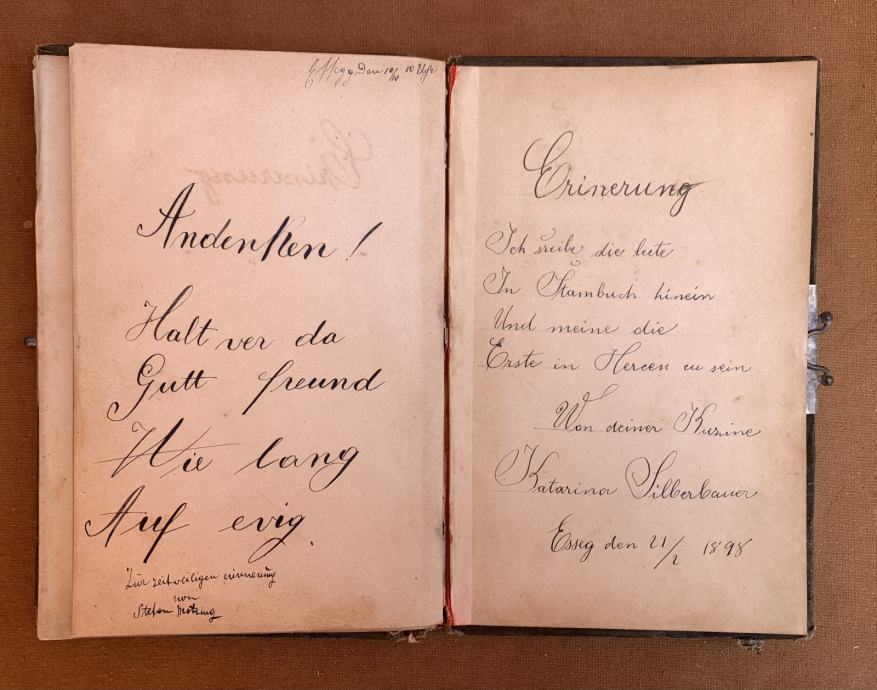 Essegg Den 10/10 10 Uhr
Andenken!
Halt ver da
Gutt freund
Wie lang
Auf evig.
Zur zeitweiligen erinnerung
von
Stefan Motzing
Erinerung
Ich sreibe die lete
In Stambuch hinein
Und meine die
Erste in Hercen cu sein
Von deiner Kuzine
Katarina Silberbauer
Esseg den 21/1 1898